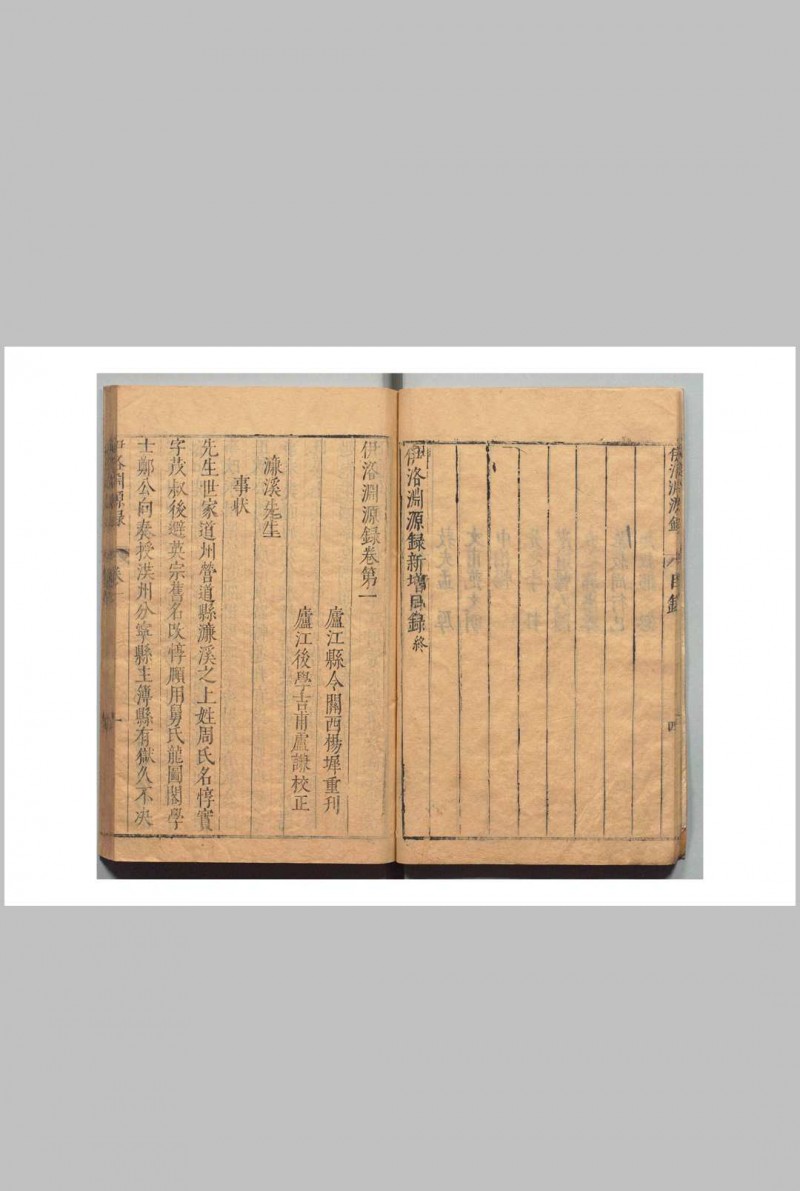 伊洛淵源錄
目錄
四
伊洛淵源録新增目録終
伊洛淵源録卷第一
廬江縣令關西楊墀重刊
廬江後學吉甫盧謙校正
濂溪先生
事状
先生世家道州營道縣濂溪之上姓周氏名惇實
字茂叔後避英宗舊名改惇頤用舅氏龍圖閣學
士鄭公向奏授洪州分寧縣主簿縣有獄久不决
伊洛淵源録
卷一